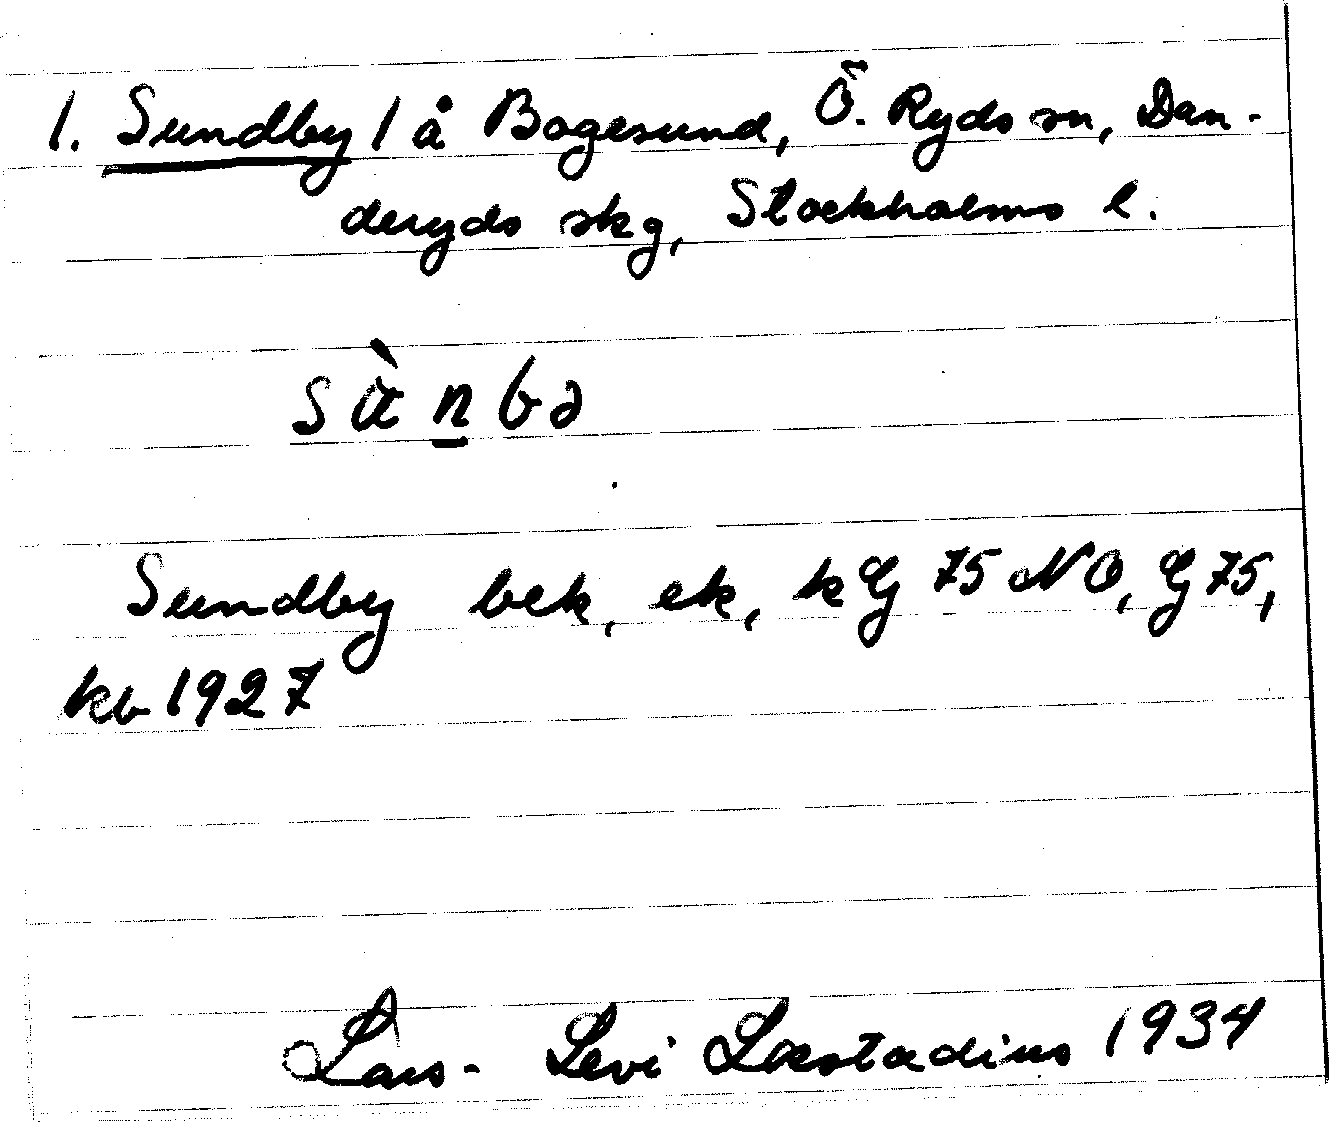 1. Sundby 1 å Bogesund, Ö. Ryds sn, Dan-
deryds skg, Stockholms l.
sὰn̲bə
Sundby bek, ek, kG 75 NO, G 75,
kb 1927
Lars-Levi Læstadius 1934